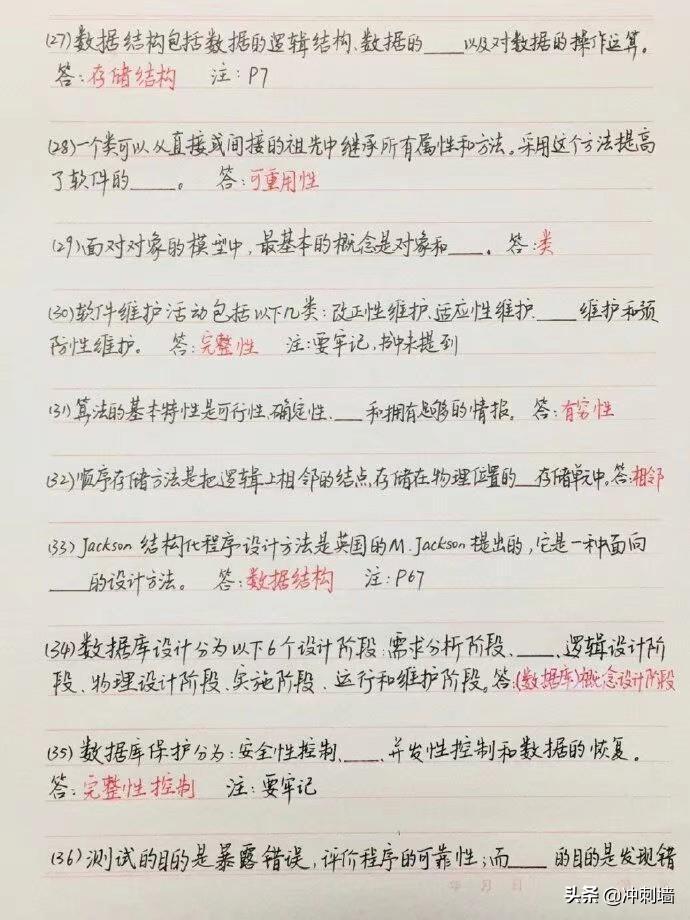 (27)数据结构包括数据的逻辑结构、数据的____以及对数据的操作运算。
答:存储结构 注:P7
(28)一个类可以从直接或间接的祖先中继承所有属性和方法。采用这个方法提高
了软件的____。 答:可重用性
(29)面对对象的模型中,最基本的概念是对象和____。答:类
(30)软件维护活动包括以下几类:改正性维护、适应性维护、____维护和预
防性维护。 答:完整性 注:要牢记,书中未提到
(31)算法的基本特性是可行性、确定性、____和拥有足够的情报。 答:有穷性
(32)顺序存储方法是把逻辑上相邻的结点存储在物理位置的__存储单元中。答:相邻
(33) Jackson 结构化程序设计方法是英国的M.Jackson提出的,它是一种面向
____的设计方法。 答:数据结构 注:P67
(34)数据库设计分为以下6个设计阶段:需求分析阶段、____、逻辑设计阶
段、物理设计阶段、实施阶段、运行和维护阶段。答:(数据库)概念设计阶段
(35)数据库保护分为:安全性控制、____、并发性控制和数据的恢复。
答:完整性控制 注:要牢记
(36)测试的目的是暴露错误,评价程序的可靠性;而____的目的是发现错
年 月 日
头条 @冲刺墙